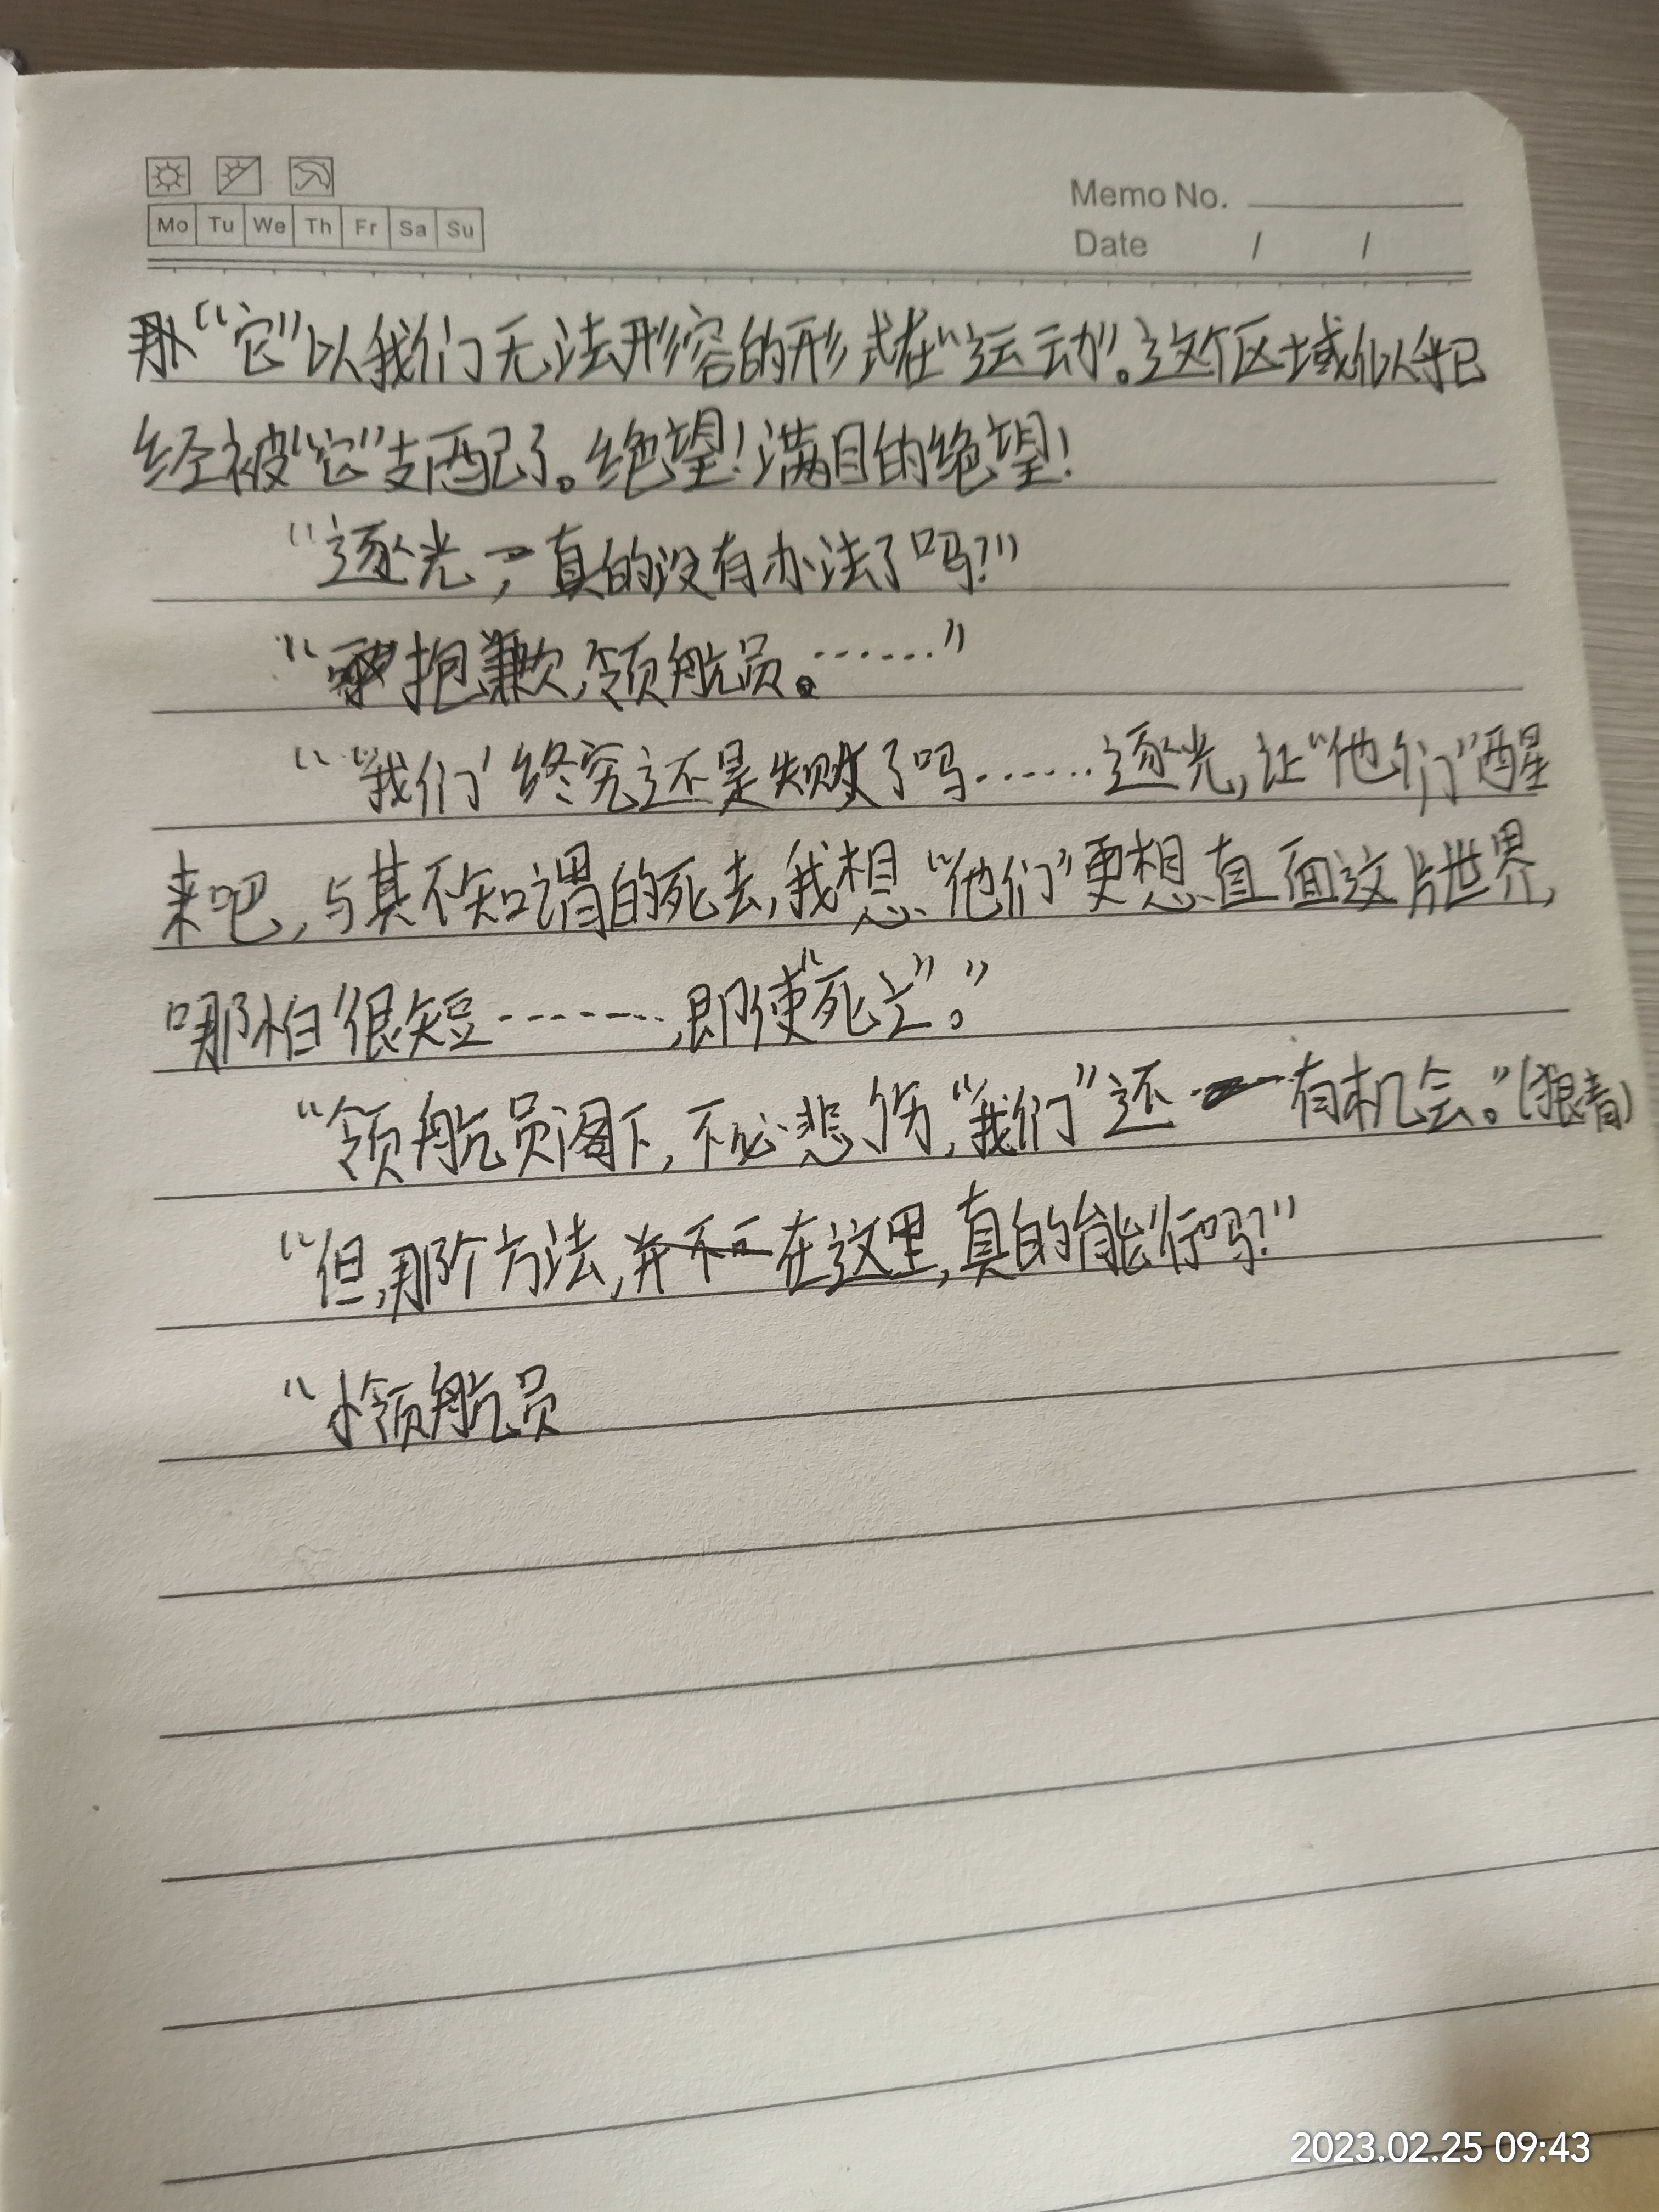 Mo Tu We Th Fr Sa Su
Memo No.
Date / /
那“它”以我们无法形容的形式在“运动”。这个区域似乎已
经被“它”支配了。绝望!满目的绝望!
“逐光,真的没有办法了吗?”
“抱歉,领航员。……”
“‘我们’终究还是失败了吗……逐光,让“他们”醒
来吧,与其不知谓的死去,我想“他们”更想直面这片世界,
哪怕很短………,即使“死亡”。”
“领航员阁下,不必悲伤,“我们”还有机会。”(狠毒)
“但,那个方法,并不在这里,真的能行吗?”
“领航员
2023.02.25 09:43